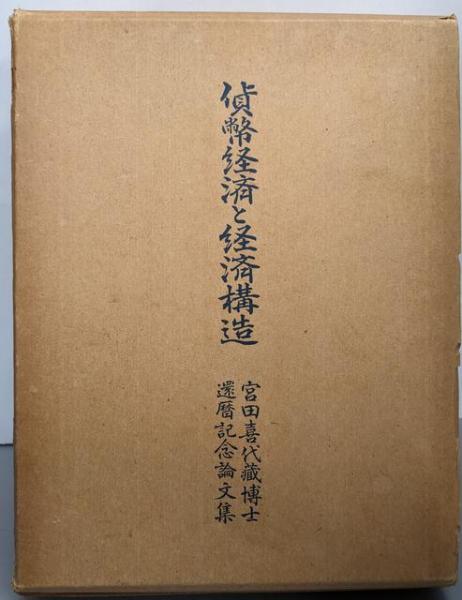 貨幣経済と経済構造
宮田喜代藏博士
還暦記念論文集